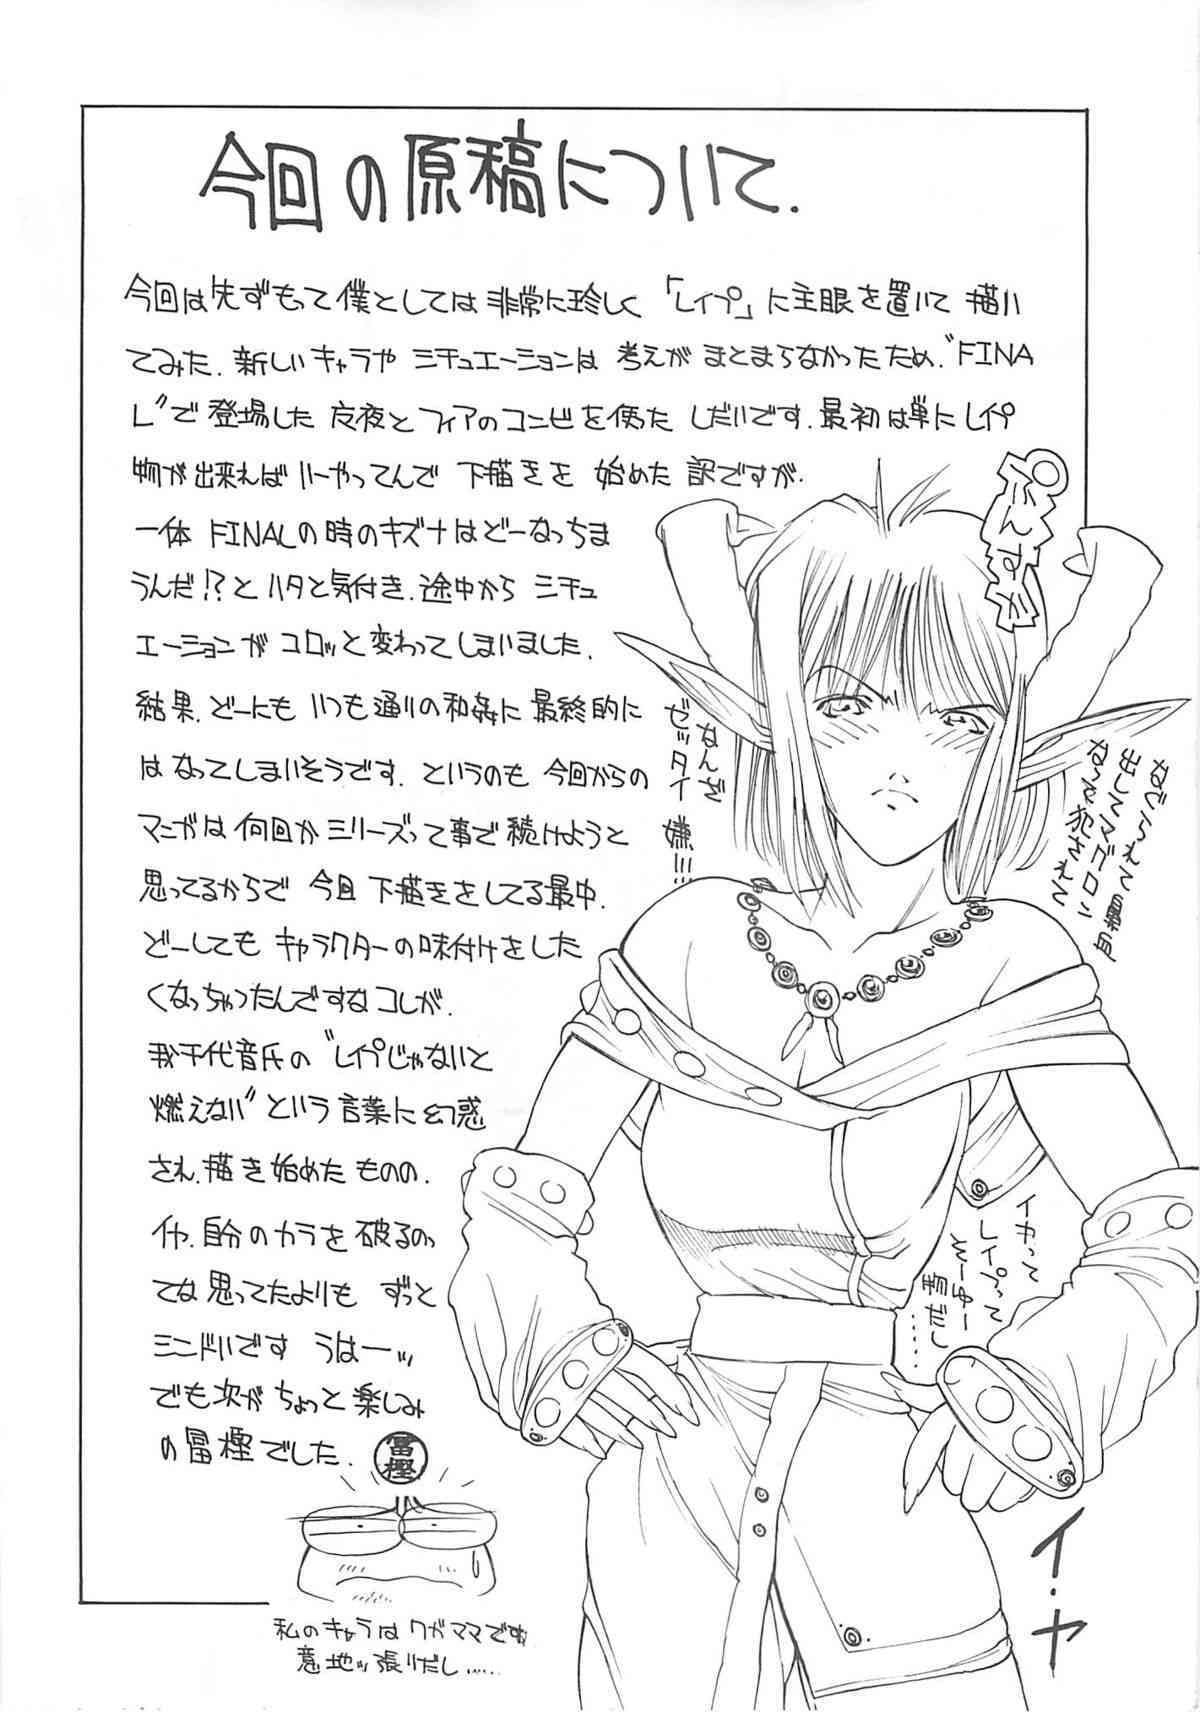 今回の原稿について.
今回は先ずもって僕としては非常に珍しく「レイプ」に主眼を置いて描い
てみた.新しいキャラや シチュエーションは 考えが まとまらなかったため、"FINA
L"で登場した 友夜とフィアのコンビを使た しだいです.最初は単にレイプ
物が出来ればいーやってんで 下描きを 始めた 訳ですが.
一体 FINALの時のキズナはどーなっちま
うんだ!?とハタと気付き.途中から シチュ
エーションが コロッと変わってしまいました.
結果.どーにも いつも通りの和姦に最終的に
はなってしまいそうです.というのも 今回からの
マンガは何回かシリーズって事で続けようと
思ってるからで 今且 下描きをしてる最中.
どーしても キャラクターの味付けをした
くなっちゃったんですなコレが.
我千代音氏の"レイプじゃないと
燃えない"という言葉に幻惑
され.描き始めたものの.
イヤ.自分のカラを破るのっ
てな思ってたよりも ずっと
シンドいです うはーッ
でも次が ちょっと楽しみ
の冨樫でした.
冨樫
私のキャラは ワガママです
意地ッ張りだし……
なんだ
ゼッタイ
嫌!!!
出して
犯されて
イカって
レイプって
イ・ヤ